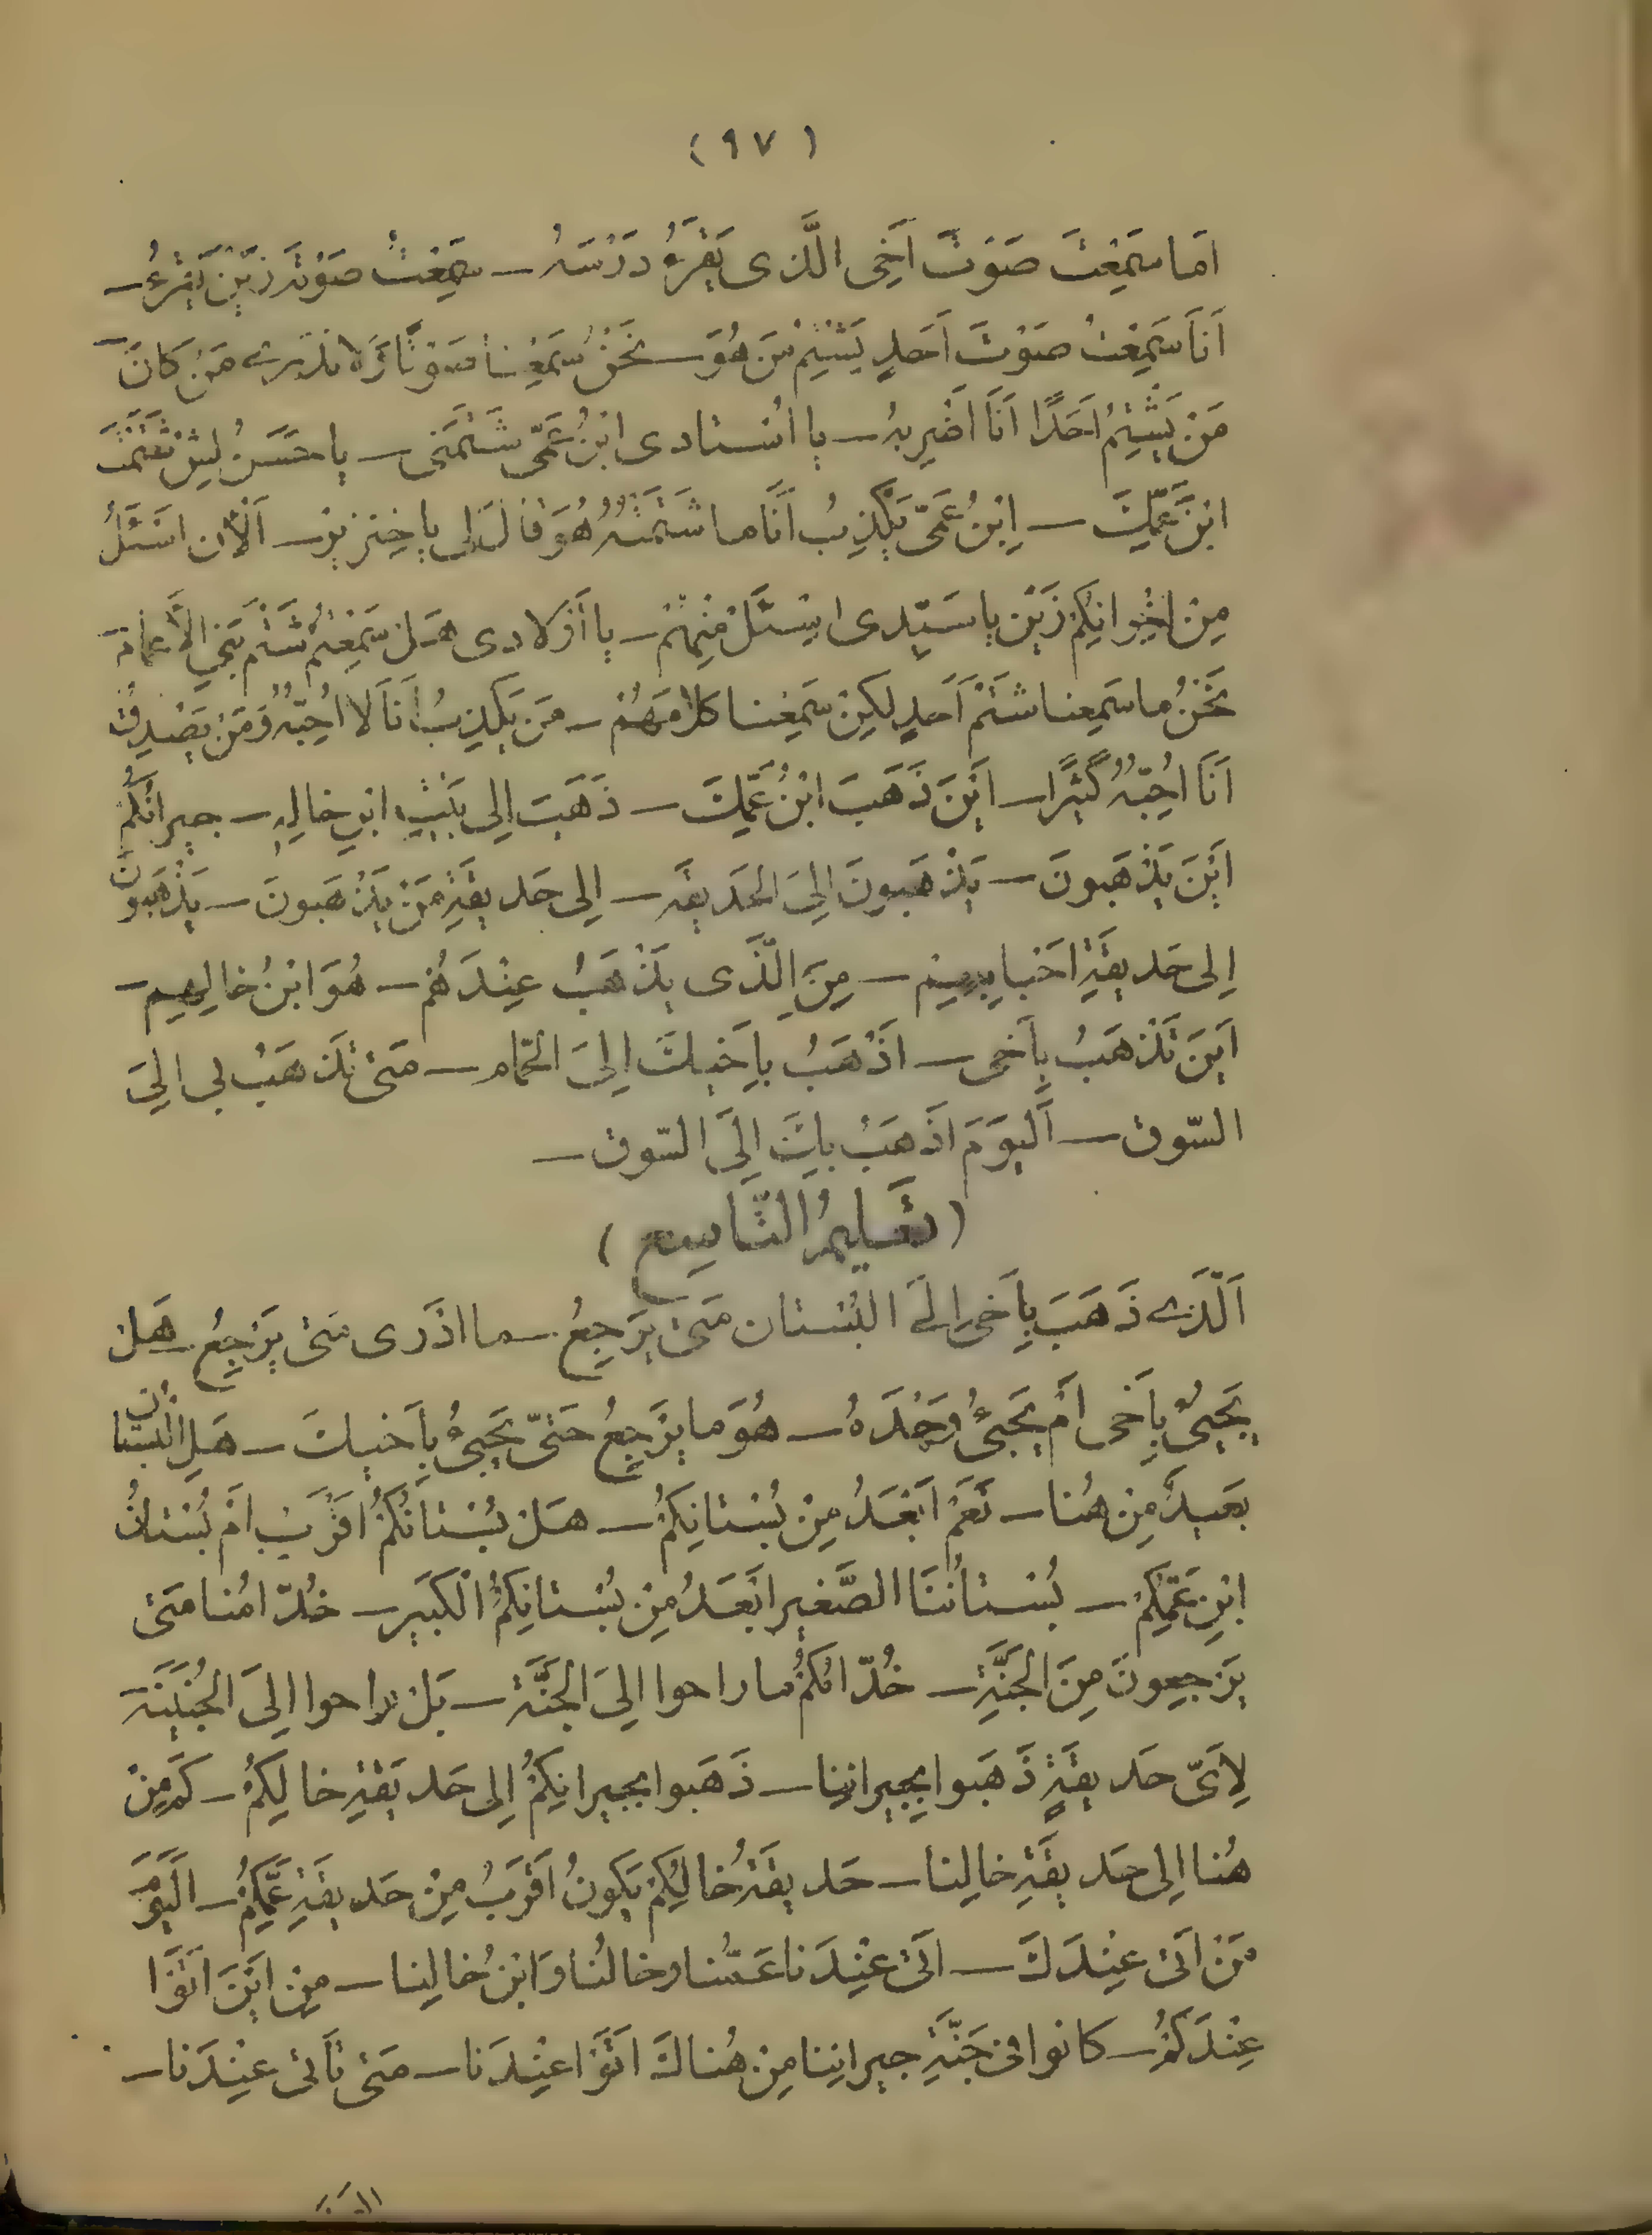 (٩٧)
اَما سَمِعْتَ صَوْتَ اَخِی الَّذی یَقْرَءُ دَرْسَهُ – سَمِعْتُ صَوْتَه زَیْن یَقْرَءُ –
اَنَا سَمِعْتُ صَوْتَ اَحَدٍ یَشْتِمُ مَن هُوَ – نَحْنُ سَمِعْنا صَوْتًا وَلا نَدْری مَنْ کانَ –
مَنْ یَشْتِمُ اَحَدًا اَنَا اَضْرِبهُ – یا اُسْتادی ابْنُ عَمّی شَتَمَنی – یا حَسَنُ لیش تَشْتَمُ
ابْنَ عَمِّكَ – اِبْنُ عَمّی یَکْذِبُ اَنَا ما شَتَمْتُهُ هُوَ قالَ لی یا خِنزیرُ – اَلْآن اسْئَلُ
مِنْ اخْوانِکُمْ زَیْن یا سَیّدی اسْئَلْ مِنْهُمْ – یا اَوْلادی هَلْ سَمِعْتُمْ شَتْمَ بَنی الأَعْمام –
نَحْنُ ما سَمِعنا شَتْمَ اَحَدٍ لکِنْ سَمِعْنا کَلامَهُمْ – مَن یَکْذِبُ اَنَا لا اُحِبّهُ وَمَنْ یَصْدِقُ
اَنَا اُحِبّهُ کَثیرًا – اَیْنَ ذَهَبَ ابْنُ عَمِّكَ – ذَهَبَ اِلی بَیْتِ ابنِ خالِهِ – جیرانُکُمْ
اَیْنَ یَذْهَبونَ – یَذْهَبونَ اِلیَ الحَدیقَه – اِلی حَدیقَةِ مَنْ یَذْهَبونَ – یَذْهَبونَ
اِلی حَدیقَةِ اَحْبابِهِم – مِنَ الَّذی یَذْهَبُ عِنْدَهُمْ – هُوَ ابْنُ خالِهِم –
اَینَ تَذْهَبُ بِاَخی – اَذْهَبُ بِاَخیكَ اِلیَ الحَمّام – مَتی تَذْهَبُ بی اِلیَ
السّوق – اَلیَوْمَ اَذْهَبُ بِكَ اِلَی السّوق –
(تَعْلیمُ التّاسِع)
اَلَّذی ذَهَبَ بِاَخی اِلَی البُسْتان مَتی یَرْجِعُ – ما اَدْری مَتی یَرْجِعُ – هَلْ
یَجیئُ بِاَخی اَمْ یَجیئُ وَحْدَهُ – هُوَ ما یَرْجِعُ حَتّی یَجیئُ بِاَخیكَ – هَلِ البُسْتانُ
بَعیدٌ مِنْ هُنا – نَعَمْ اَبْعَدُ مِنْ بُسْتانِکُمْ – هَلْ بُسْتانُکُمْ اَقْرَبُ اَمْ بُسْتانُ
ابْنِ عَمِّکُمْ – بُسْتانُنَا الصَّغیر اَبْعَدُ مِنْ بُسْتانِکُمُ الْکَبیر – خُدّامُنا مَتی
یَرْجِعونَ مِنَ الجَنَّةِ – خُدّامُکُمْ ما راحوا اِلیَ الجَنَّة – بَلْ راحوا اِلیَ الجُنَیْنَة
لِاَیّ حَدیقَةٍ ذَهَبوا بِجیرانِنا – ذَهَبوا بِجیرانِکُمْ اِلی حَدیقَةِ خالِکُمْ – کَمْ مِنْ
هُنا اِلی حَدیقَةِ خالِنا – حَدیقَةُ خالِکُمْ یَکونُ اَقْرَبُ مِنْ حَدیقَةِ عَمِّکُمْ – اَلیَوْمَ
مَنْ اَتی عِنْدَكَ – اَتی عِنْدَنا عَمُّنا وخالُنا وَابْنُ خالِنا – مِنْ اَیْنَ اَتَوْا
عِنْدَکُمْ – کانوا فی جَنَّةِ جیرانِنا مِنْ هُناكَ اَتَوْا عِنْدَنا – مَتی تَأتی عِنْدَنا –